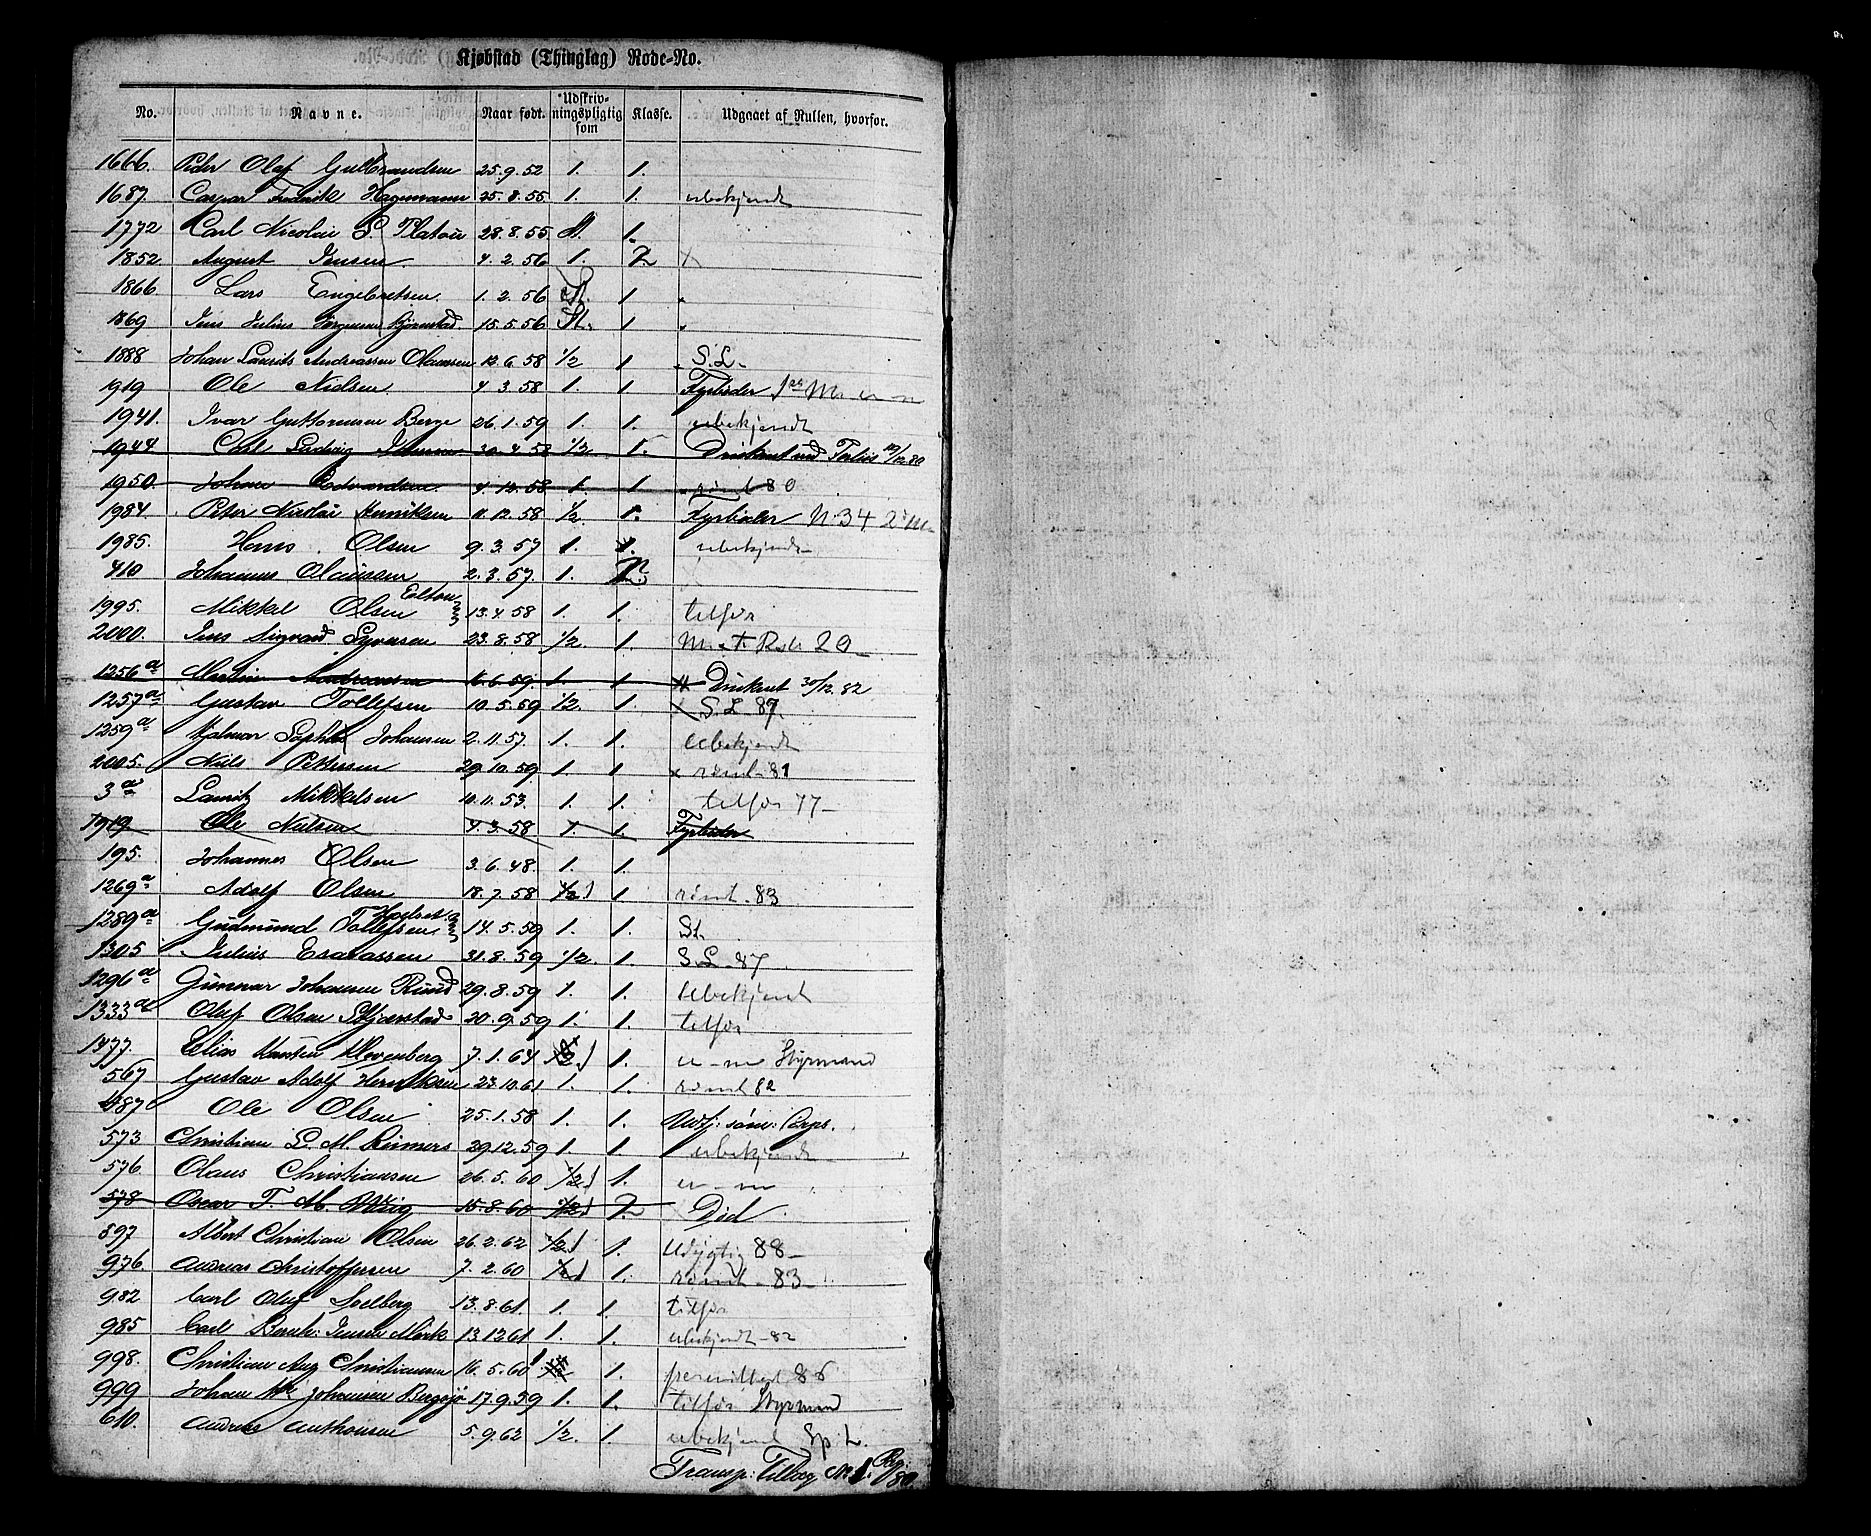 Kjøbstad (Thinglag) Rode-No.
No. Navne. Naar født. Udskrivningspligtig som Klasse. Udgaaet af Rullen, hvorfor.
1666. Peder Olaf Gulbrandsen 25.9.52 1. 1.
1687. Caspar Fredrik Hagemann 25.8.55. 1. 1. ubekjendt
1772 Carl Nicolai S. Platou 28.8.55. 1.
1852. August Jensen. 4.2.56 1. 2
1866 Lars Engebretsen. 1.2.56 St. 1
1869 Jens Julius Jørgensen Bjørnstad 15.5.56 St. 1
1888 Johan Laurits Andreassen Olaussen 12.6.58 1/2 1 S.L.
1919 Ole Nielsen. 4.3.58 1. 1 Fyrbøder
1941. Ivar Guttormsen Berge 26.1.59 1. 1. ubekjendt
1944 Carl Ludvig 30.4.58 1/2 1. Druknet ved 80
1950. Johan Edvardsen. 4.12.58 1. 1 rømt 80
1984. Peter Nicolai Henriksen 11.12.58 1/2 1. Fyrbøder N. 34
1985. Hans Olsen 9.3.57 1. 1. ubekjendt
410 Johannes Olaussen 2.3.57. 1.
1995. Mikkel Olsen 13.4.58 1. 1. tilfør
2000. Jens Sigvard Syversen 23.8.58 1/2. 1. 20
1256 a Martin Andreassen 6.6.59. 1. 1 Druknet 30/12.82
1257 a Gustav Tollefsen 10.5.59 1/2. 1. S.L. 87.
1259 a Hjalmar Sophus Johansen 2.11.57. 1. 1. Ubekjendt
2005. Niels Pettersen 29.10.59 1. 1 x rømt 81
3 a Lauritz Mikkelsen 10.11.53. 1. 1. tilfør 77
1919 Ole Nielsen 4.3.58 1. 1. Fyrbøder
195. Johannes Olsen 3.6.48. 1. 1.
1269 a Adolf Olsen 18.7.58 1/2 1 1. rømt 83
1289 a Gudmund Tollefsen 14.5.59 1. 1. St.
1305 Julius Esaiassen 31.8.59 1/2. 1. S.L. 87
1296 a Gunnar Johansen Ruud 29.8.59 1. 1. Ubekjendt
1333 a Oluf Olsen Skjærstad 20.9.59 1. 1. tilfør
1377. Elias Karsten Klevenberg 7.1.64 1. Styrmand
567 Gustav Adolf Henriksen 23.10.61 1. 1. rømt 82
487 Ole Olsen 25.1.58 1. 1. Udsj: søm: Corps.
573 Christian L. M. Reimers 29.12.59 1. 1. ubekjendt
576 Olaus Christiansen 26.5.60 1/2 1 1.
578 Oscar T. M. Wiig 15.8.60 1/2 1 2. Død
897 Albert Christian Olsen 26.2.62 1/2 1 1. Udygtig 88
976. Andreas Christoffersen 7.2.60 1/2 1 1. rømt 83
982 Carl Oluf Solberg 13.8.61. 1. 1. tilfør
985 Carl Bernh: Jensen Mørk 13.12.61 1. 1. ubekjendt 82
998. Christian Aug Christiansen 16.5.60 1. permitteret 86
999 Johan Johansen Bergsjø 17.9.59 1. 1. tilfør Styrmand
610. Andreas Anthonsen 5.9.62 1/2. 1. ubekjendt
Transp: Tillæg No 1. Pag: 80.